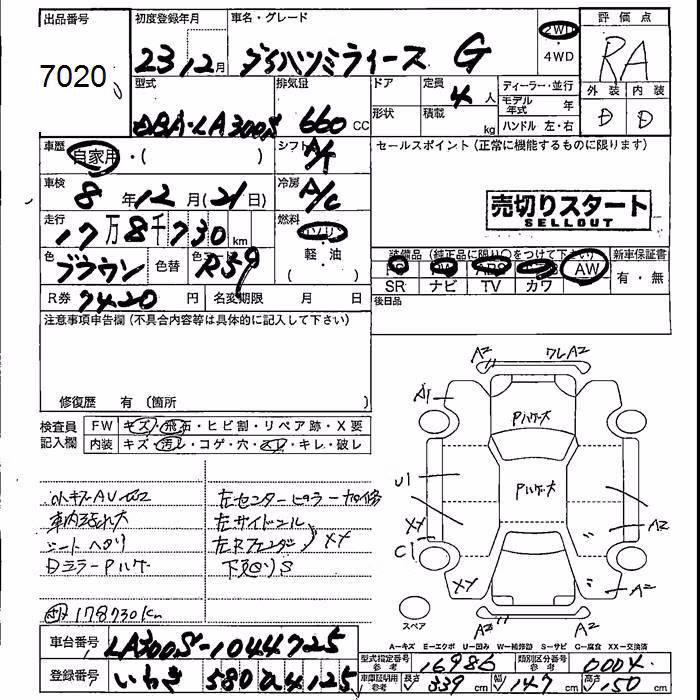 出品番号
初度登録年月
車名・グレード
2WD
・
4WD
評価点
7020
23年12月
ダイハツミライース G
RA
型式
排気量
ドア
定員
4人
ディーラー・並行
モデル年式 年
外装 内装
DBA-LA300S
660 CC
形状
積載
kg
ハンドル 左・右
D D
車歴
自家用・( )
シフト
A/T
セールスポイント(正常に機能するものに限ります)
車検
8年12月(21日)
冷房
A/C
売切りスタート
SELLOUT
走行
17万8千730km
燃料
ガソリン
軽・油
色
ブラウン
色替
R59
装備品(純正品に限り○をつけて下さい)
新車保証書
AW
有・無
SR ナビ TV カワ
R券 7420円
名変期限 月 日
後日品
注意事項申告欄(不具合内容等は具体的に記入して下さい)
修復歴 有(箇所 )
検査員
記入欄
FW キズ・飛石・ヒビ割・リペア跡・X要
内装 キズ・汚レ・コゲ・穴・スレ・キレ・破レ
小キズAV
車内汚れ大
シートヘタリ
左センターピラー加修
左サイドシル
左Rフェンダー XX
下廻りS
178730km
A2 ワレA2
A1
Pハゲ大
U1
Pハゲ大
XX
A2
C1
XX
A2
A2 A2
スペア
A=キズ E=エクボ U=凹み W=補修跡 S=サビ C=腐食 XX=交換済
車台番号 LA300S-1044725
登録番号 いわき 580 4125
型式指定番号 参考 16986
類別区分番号 参考 0004
車庫証明用 参考 長さ 339cm 幅 147cm 高さ 150cm